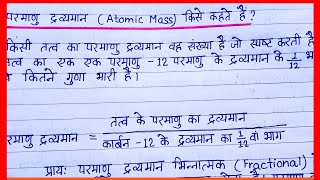 परमाणु द्रव्यमान (Atomic Mass) किसे कहते हैं?
किसी तत्व का परमाणु द्रव्यमान वह संख्या है जो स्पष्ट करती है
तत्व का एक एक परमाणु -12 परमाणु के द्रव्यमान के 1/12 भा
कितने गुणा भारी है।
तत्व के परमाणु का द्रव्यमान
रमाणु द्रव्यमान =
कार्बन -12 के द्रव्यमान का 1/12 वां भाग
प्रायः परमाणु द्रव्यमान भिन्नात्मक (Fractional)